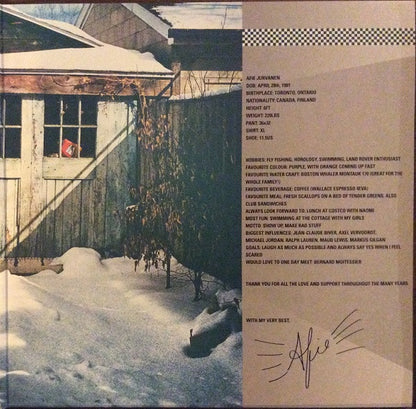 AFIE JURVANEN
DOB: APRIL 28th, 1981
BIRTHPLACE: TORONTO, ONTARIO
NATIONALITY: CANADA, FINLAND
HEIGHT: 6FT
WEIGHT: 220LBS
PANT: 36x32
SHIRT: XL
SHOE: 11.5US
HOBBIES: FLY FISHING, HOROLOGY, SWIMMING, LAND ROVER ENTHUSIAST
FAVOURITE COLOUR: PURPLE, WITH ORANGE COMING UP FAST
FAVOURITE WATER CRAFT: BOSTON WHALER MONTAUK 170 (GREAT FOR THE
WHOLE FAMILY!)
FAVOURITE BEVERAGE: COFFEE (WALLACE ESPRESSO 4EVA)
FAVOURITE MEAL: FRESH SCALLOPS ON A BED OF TENDER GREENS. ALSO
CLUB SANDWICHES
ALWAYS LOOK FORWARD TO: LUNCH AT COSTCO WITH NAOMI
MOST FUN: SWIMMING AT THE COTTAGE WITH MY GIRLS
MOTTO: SHOW UP, MAKE RAD STUFF
BIGGEST INFLUENCES: JEAN-CLAUDE BIVER, AXEL VERVOORDT,
MICHAEL JORDAN, RALPH LAUREN, MAUD LEWIS, MARKUS GILGAN
GOALS: LAUGH AS MUCH AS POSSIBLE AND ALWAYS SAY YES WHEN I FEEL
SCARED
WOULD LOVE TO ONE DAY MEET: BERNARD MOITESSIER
THANK YOU FOR ALL THE LOVE AND SUPPORT THROUGHOUT THE MANY YEARS.
WITH MY VERY BEST,
Afie